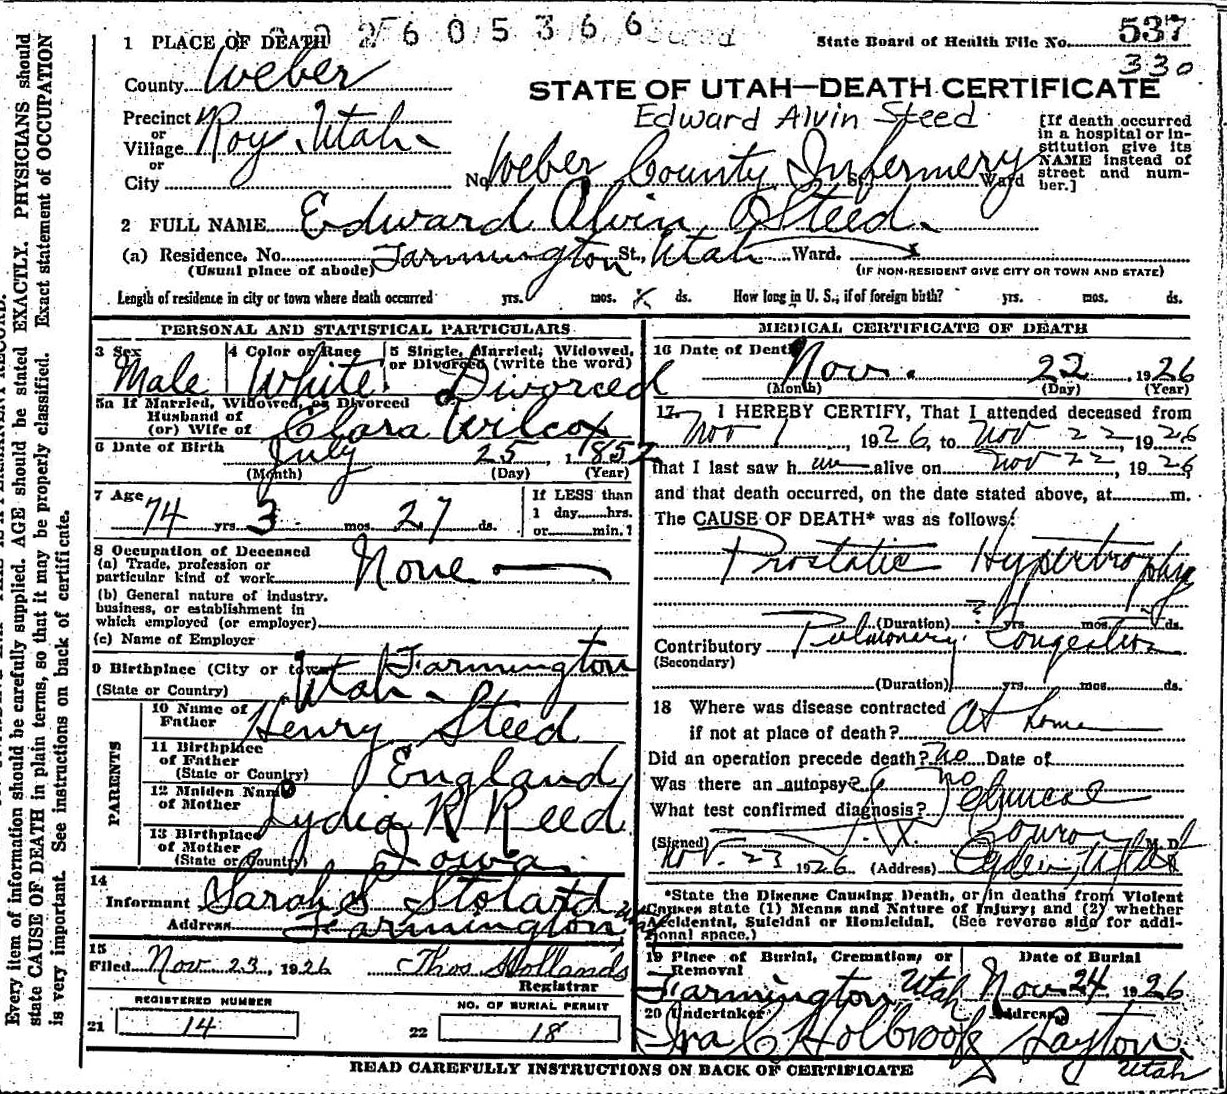 2605366
State Board of Health File No. 537
330
1 PLACE OF DEATH
County Weber
STATE OF UTAH—DEATH CERTIFICATE
Edward Alvin Steed
Precinct
or
Village Roy, Utah
or
City
[If death occurred in a hospital or institution give its NAME instead of street and number.]
No. Weber County Infermery St., Ward
2 FULL NAME Edward Alvin Steed
(a) Residence. No. Farmington St., Utah Ward.
(Usual place of abode)
(IF NON-RESIDENT GIVE CITY OR TOWN AND STATE)
Length of residence in city or town where death occurred yrs. mos. X ds. How long in U. S., if of foreign birth? yrs. mos. ds.
PERSONAL AND STATISTICAL PARTICULARS
3 Sex Male
4 Color or Race White
5 Single, Married, Widowed, or Divorced (write the word) Divorced
5a If Married, Widowed, or Divorced
Husband of
(or) Wife of Clara Wilcox
6 Date of Birth July 25, 1852
(Month) (Day) (Year)
7 Age 74 yrs. 3 mos. 27 ds.
If LESS than
1 day......hrs.
or......min.?
8 Occupation of Deceased
(a) Trade, profession or particular kind of work None
(b) General nature of industry, business, or establishment in which employed (or employer)
(c) Name of Employer
9 Birthplace (City or town) Farmington
(State or Country) Utah
PARENTS
10 Name of Father Henry Steed
11 Birthplace of Father (State or Country) England
12 Maiden Name of Mother Lydia R Reed
13 Birthplace of Mother (State or Country) Iowa
14
Informant Sarah S Stoddard
Address Farmington Utah
15
Filed Nov 23, 1926 Thos Hollands
Registrar
REGISTERED NUMBER
21 14
NO. OF BURIAL PERMIT
22 18
MEDICAL CERTIFICATE OF DEATH
16 Date of Death Nov. 22 1926
(Month) (Day) (Year)
17. I HEREBY CERTIFY, That I attended deceased from
Nov 1, 1926, to Nov 22 1926
that I last saw him alive on Nov 22, 1926
and that death occurred, on the date stated above, at......m.
The CAUSE OF DEATH* was as follows:
Prostatic Hypertrophy
? (Duration) yrs. mos. ds.
Contributory Pulmonary Congestion
(Secondary)
(Duration) yrs. mos. ds.
18 Where was disease contracted
if not at place of death? At home
Did an operation precede death? No Date of
Was there an autopsy? no
What test confirmed diagnosis?
(Signed) M. D.
Nov. 23 1926 (Address) Ogden, Utah
*State the Disease Causing Death, or in deaths from Violent Causes state (1) Means and Nature of Injury; and (2) whether Accidental, Suicidal or Homicidal. (See reverse side for additional space.)
19 Place of Burial, Cremation, or Removal Farmington Utah
Date of Burial Nov 24 1926
20 Undertaker Ira C Holbrook
Address Layton, Utah
READ CAREFULLY INSTRUCTIONS ON BACK OF CERTIFICATE
Every item of information should be carefully supplied. AGE should be stated EXACTLY. PHYSICIANS should
state CAUSE OF DEATH in plain terms, so that it may be properly classified. Exact statement of OCCUPATION
is very important. See instructions on back of certificate.